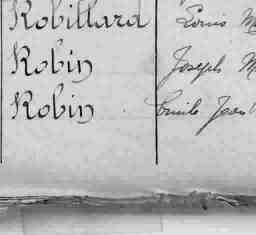 Robillard Louis M
Robin Joseph M
Robin Emile Jean